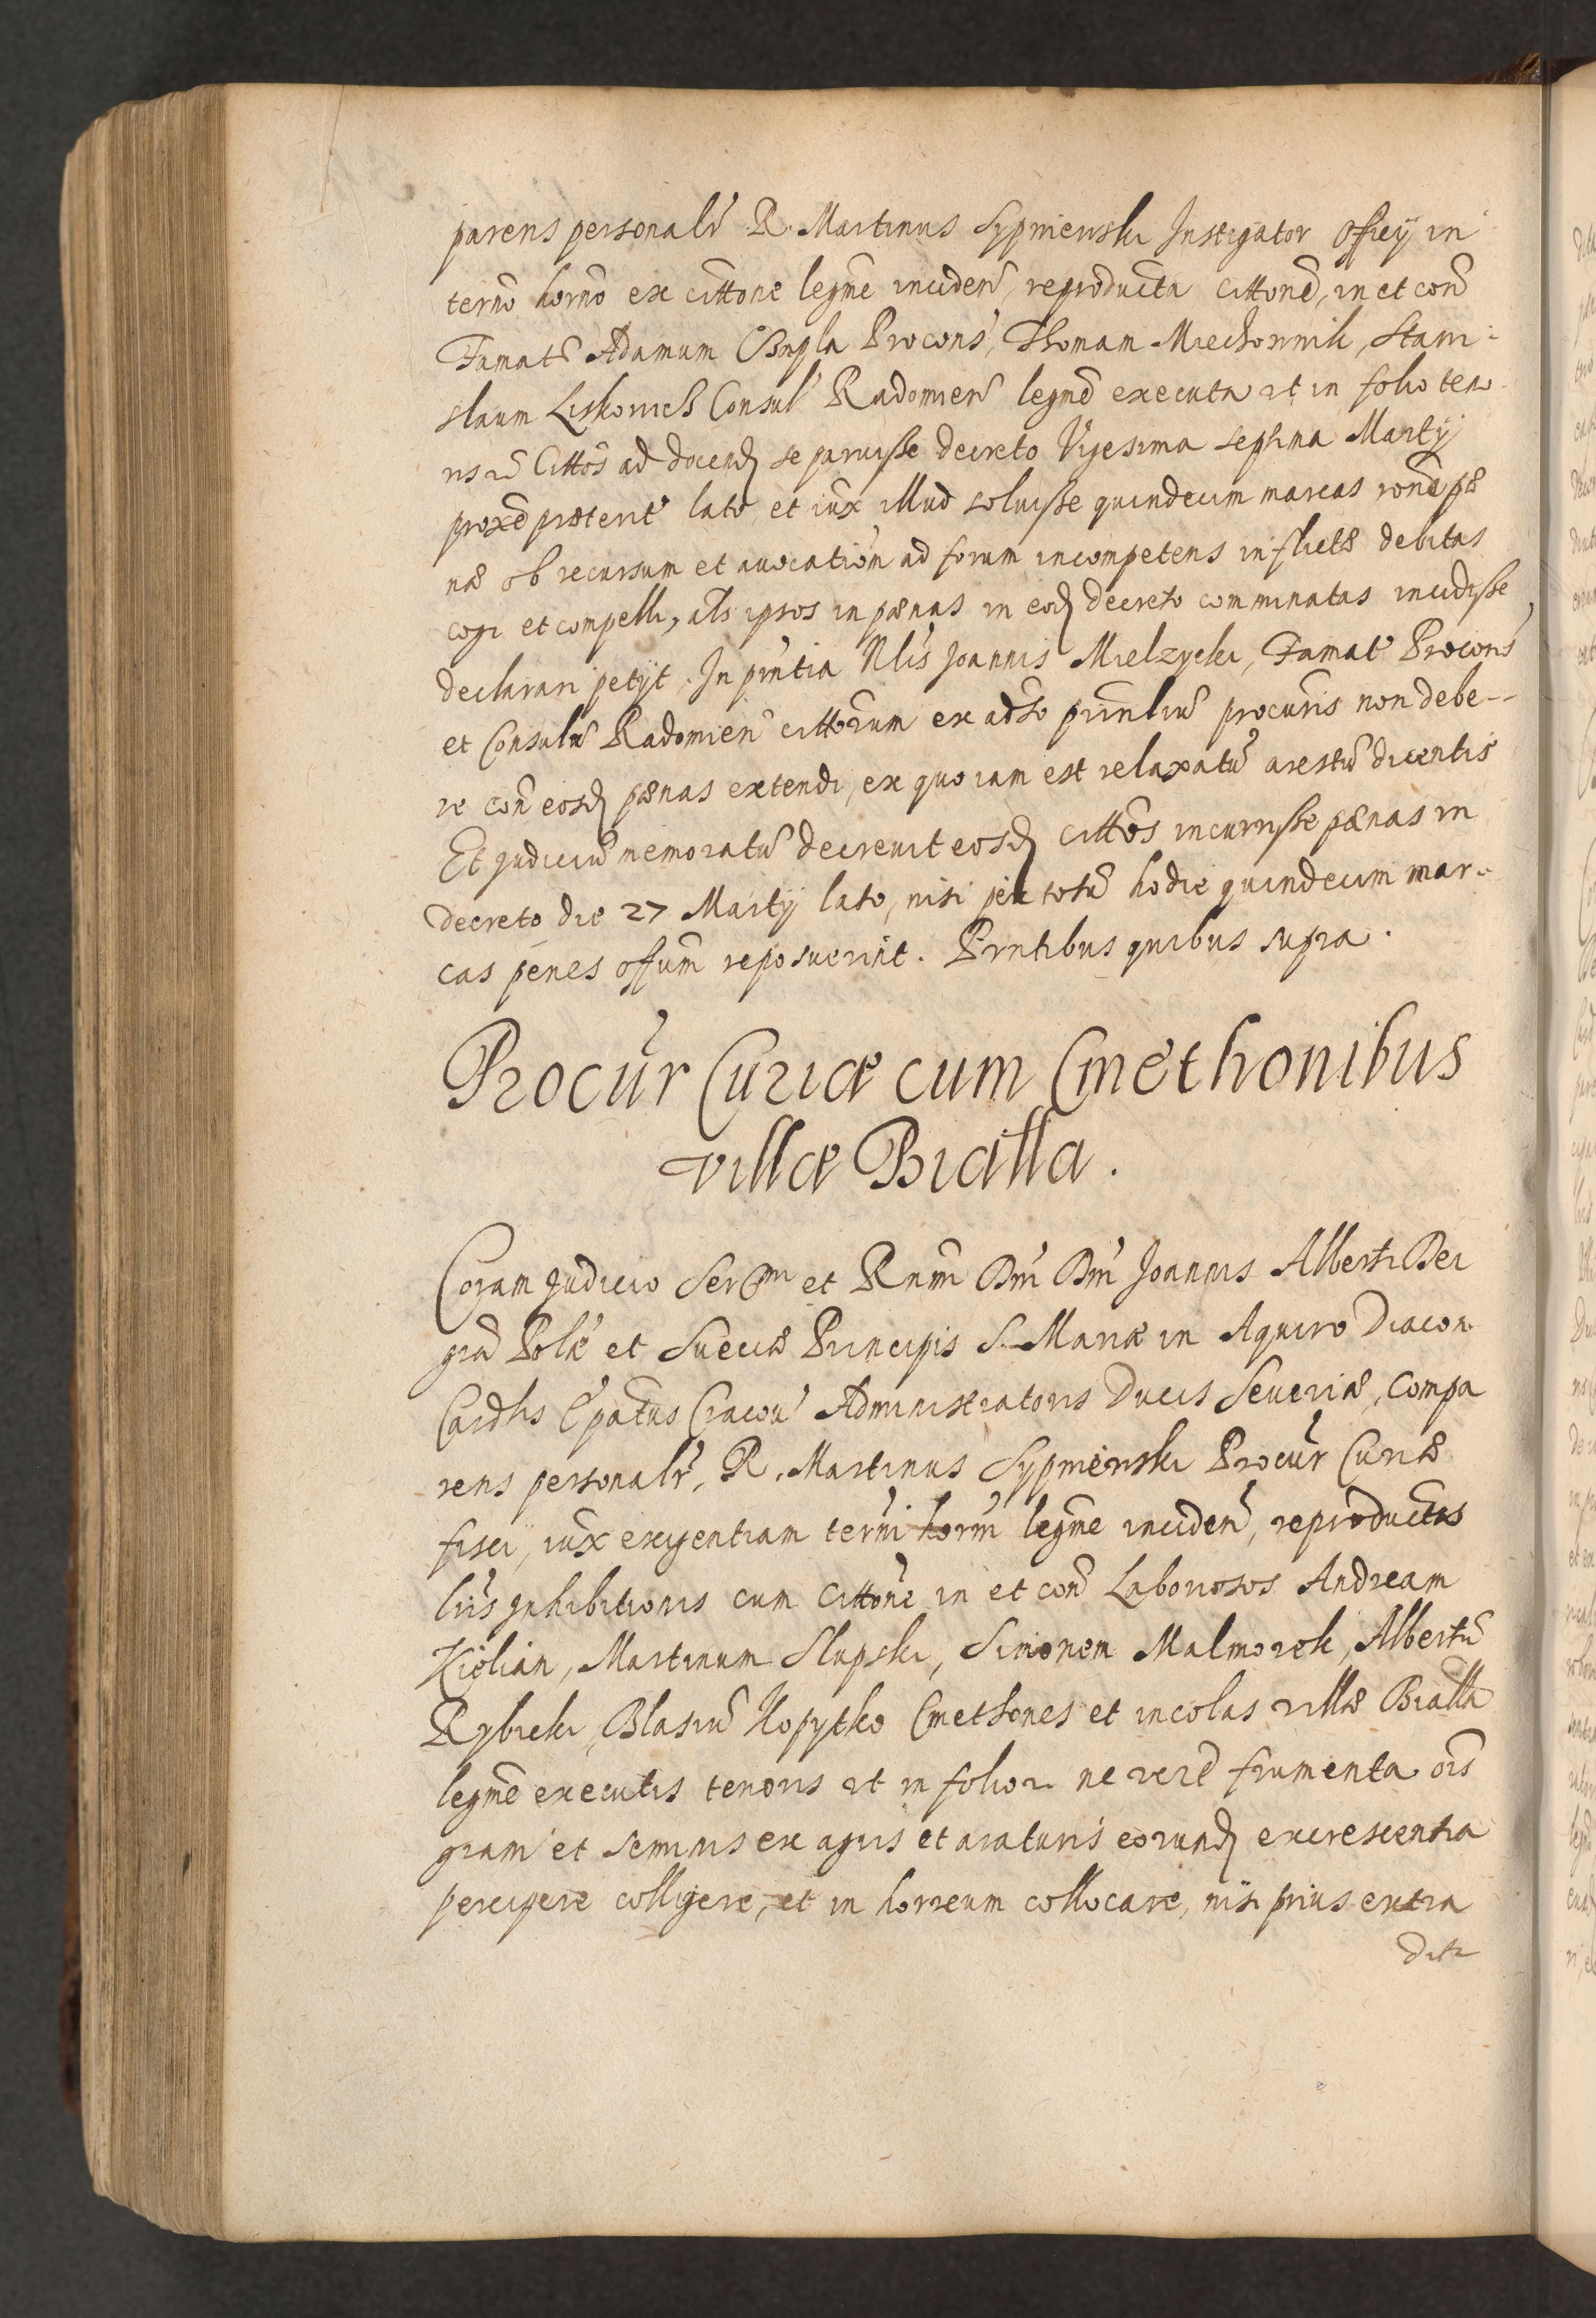 parens personalr̃ R. Martinus Sypnienski Instigator Officÿ in
termo horno ex cittone legme inciden̄, reproducta cittone, in et con̄
Famat̄ Adamum Bnpla Procons, Thomam Miechownik, Stani-
slaum Liskowich Consul Radomien̄ legme executa ut in folio teno-
ris Cittos ad docend se paruisse decreto Vigesima septima Martÿ
proxe præterit lato et iux illud soluisse quindecim marcas rone pæ
næ ob recursum et auocation̄ ad forum incompetens inflictæ debitas
cogi et compelli, als ipsos in pænas in eod decreto comminatas incidisse
declarari petÿt. In pntia Nlis Joannis Mielzycki, Famat Procons
et Consulū Radomien̄ cittorum ex adso prnliu procuris non debe-
re con̄ eosd pænas extendi, ex quo iam est relaxatū arestū dicentis
Et Judiciū memoratū decreuit eosd cittos incurrisse pænas in
decreto die 27 Martÿ lato, nisi per totū hodie quindecim mar-
cas penes offum reposuerint. Prntibus quibus supra.
Procur Curiæ cum Cmethonibus
villæ Bialla.
Coram Judicio Sermi et Rnmi Dni Dni Joannis Alberti Dei
gra Polæ et Sueciæ Principis S. Mariæ in Aquiro Diacon
Cardlis Epatus Cracou Administratoris Ducis Seueriæ, compa
rens personalr̃, R. Martinus Sypnienski Procur Curiæ
fisci, iux exigentiam termi horni legme inciden̄, reproductis
lris Inhibitionis cum cittone in et con̄ Laboriosos Andream
Kielian, Martinum Slupski, Simonem Malmorek, Albertū
Rybicki, Blasiū Kopytko Cmethones et incolas villæ Bialla
legme executis tenoris ut in folio ne vere frumenta ois
grani et seminis ex agris et araturis eorund excrescentia
percipere colligere, et in horreum collocare, nisi prius extra
dit